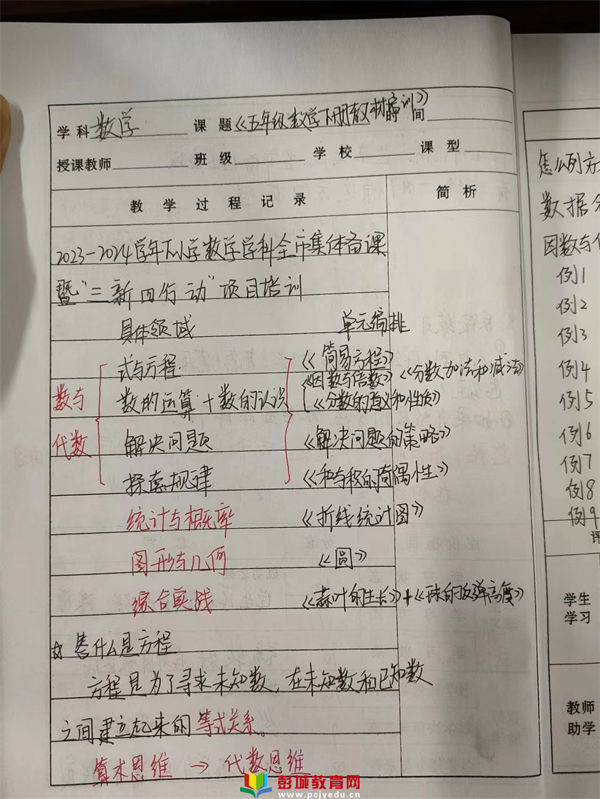 学科 数学 课题 《五年级数学下册教材培训》 间
授课教师 班级 学校 课型
教学过程记录 简析
2023-2024学年下小学数学学科全市集体备课
暨"三新四行动"项目培训
具体领域 单元编排
式与方程 《简易方程》
数与 数的运算+数的认识 《因数与倍数》《分数加法和减法》
《分数的意义和性质》
代数 解决问题 《解决问题的策略》
探索规律 《和与积的奇偶性》
统计与概率 《折线统计图》
图形与几何 《圆》
综合实践 《蒜叶的生长》+《球的反弹高度》
什么是方程
方程是为了寻求未知数,在未知数和已知数
之间建立起来的等式关系。
算术思维 → 代数思维
怎么列方
数据
因数与
例1
例2
例3
例4
例5
例6
例7
例8
例9
评
学生
学习
教师
助学
彭城教育网
www.pcjyedu.cn